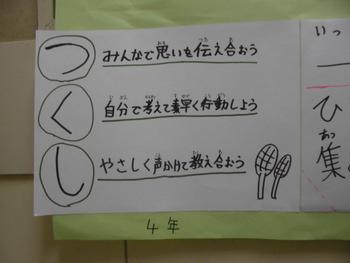 つ みんなで思いを伝え合おう
く 自分で考えて素早く行動しよう
し やさしく声かけて教え合おう
4年
いっ
ひ
集